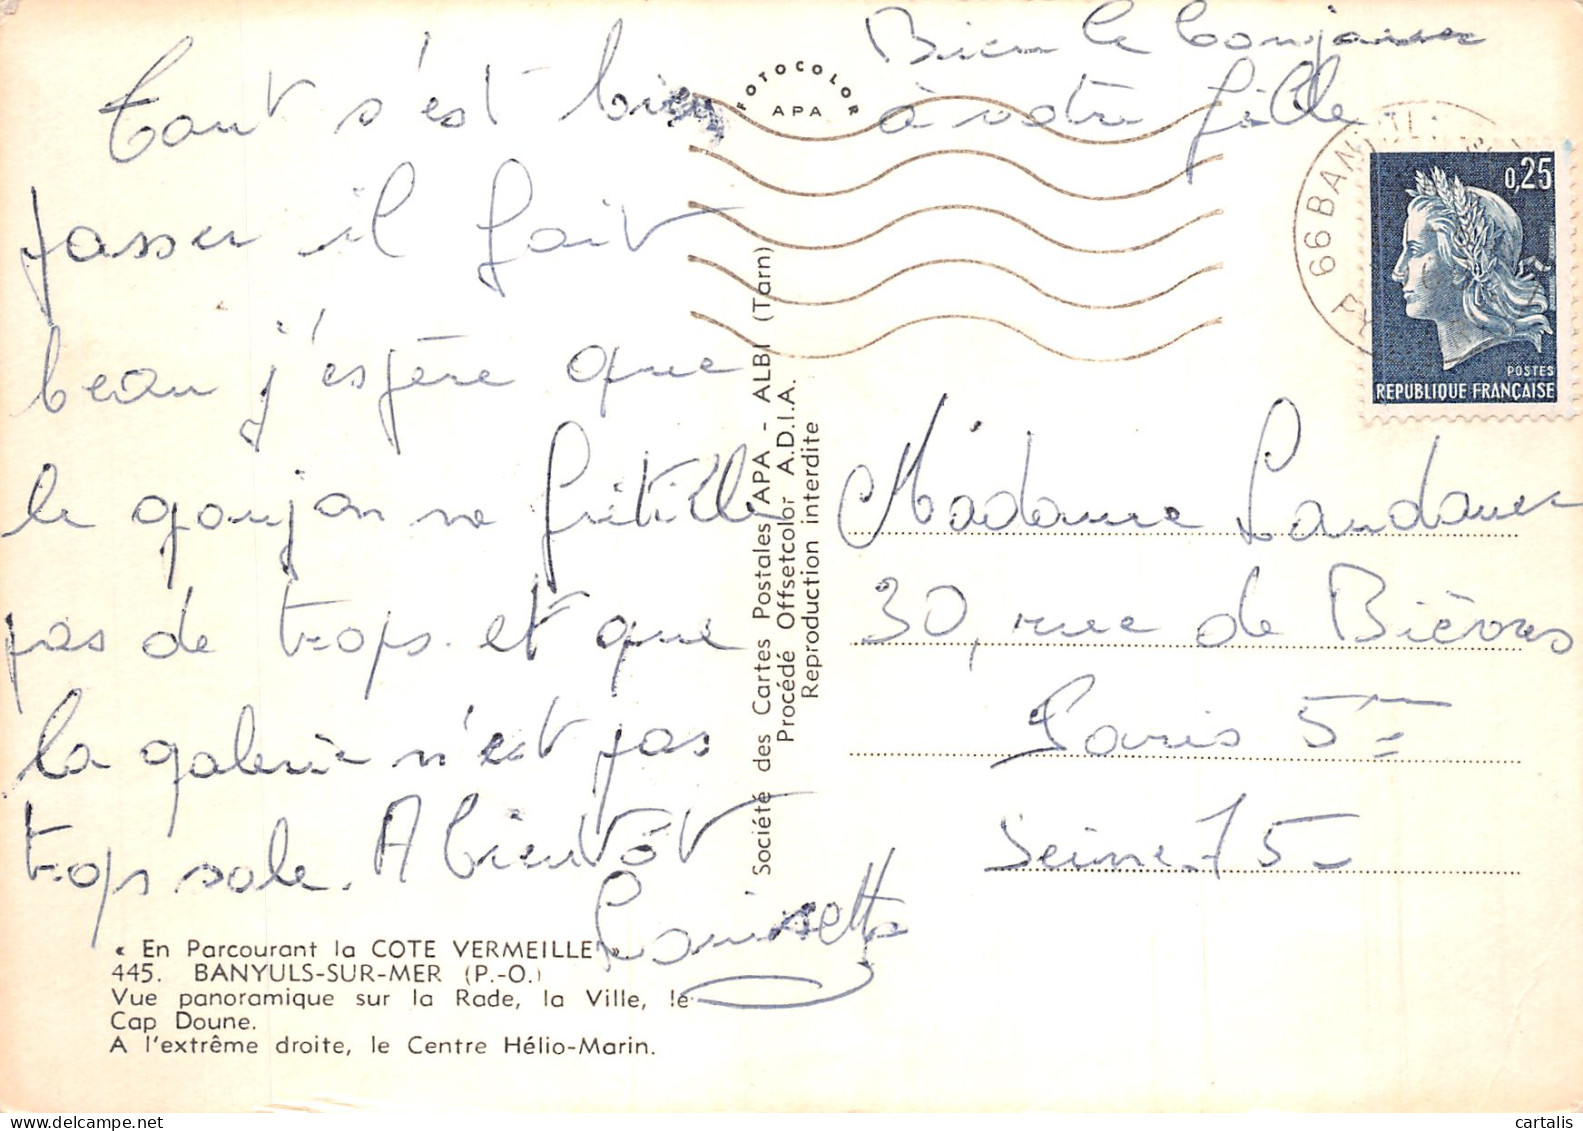 Bien le bonjour
à votre fille
Tout s'est bien
passer il fait
beau j'espère que
le goujon ne frétille
pas de trops. et que
la galerie n'est pas
trops sale. A bientôt
FOTOCOLOR
APA
66 BANYULS
0,25
POSTES
REPUBLIQUE FRANÇAISE
Société des Cartes Postales APA - ALBI (Tarn)
Procédé Offsetcolor A.D.I.A.
Reproduction interdite
Madame Landauer
30, rue de Bièvres
Paris 5
Seine 75
« En Parcourant la COTE VERMEILLE »
445. BANYULS-SUR-MER (P.-O.)
Vue panoramique sur la Rade, la Ville, le
Cap Doune.
A l'extrême droite, le Centre Hélio-Marin.
cartalis